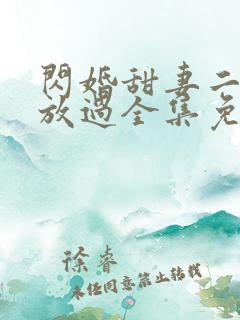 閃婚甜妻二
放過全集免
徐睿
未经同意禁止转载